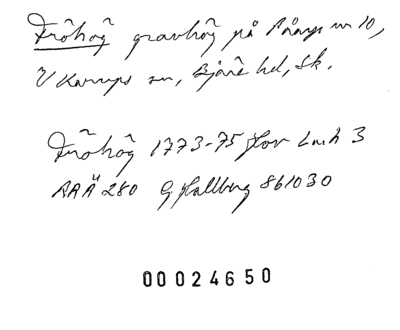 Fröhög gravhög på Påarps nr 10,
V Karups sn, Bjäre hd, Sk.
Fröhög 1773-75 Hov Lmh 3
AAÄ 280 G Hallberg 861030
00024650